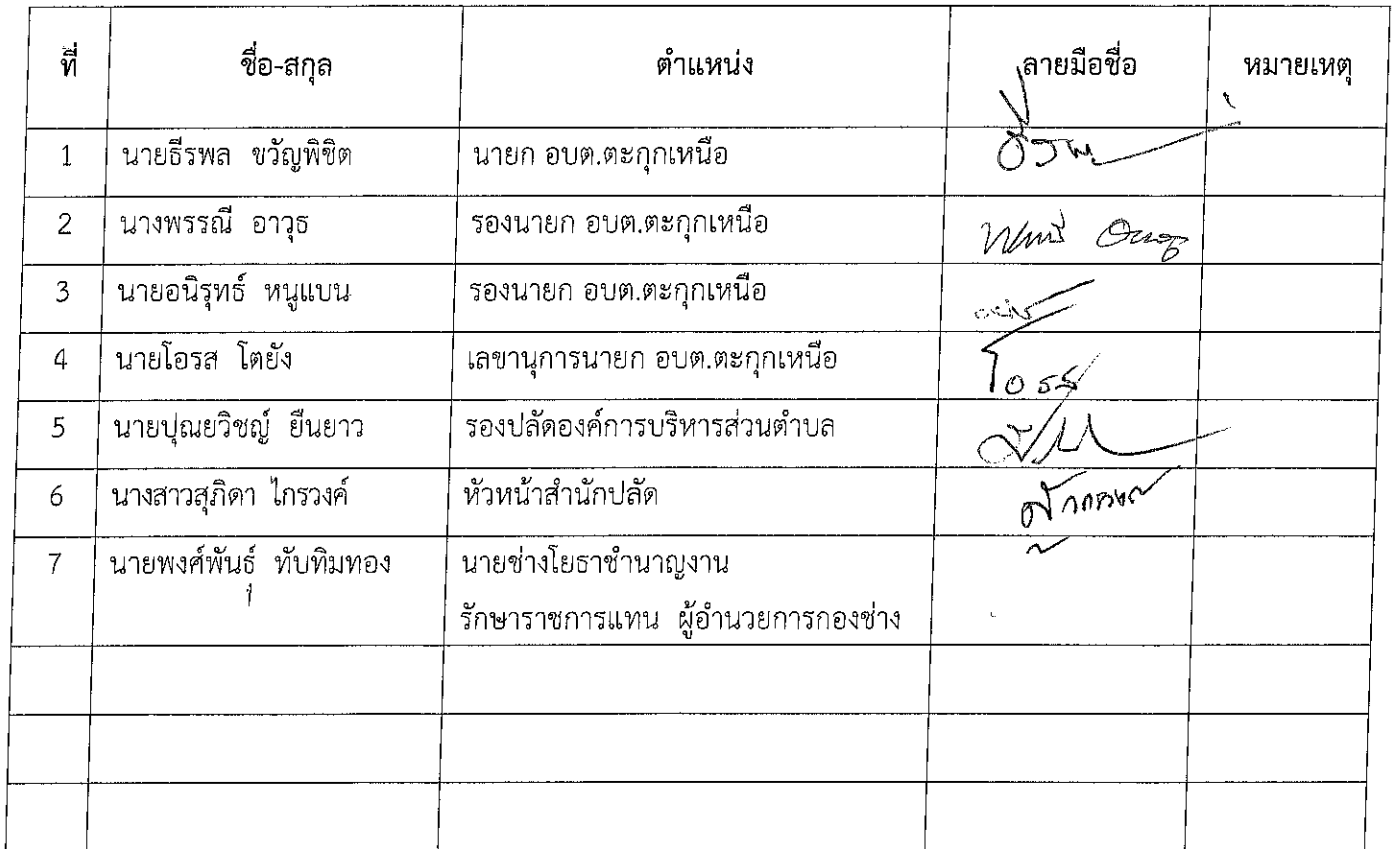 ที่ ชื่อ-สกุล ตำแหน่ง ลายมือชื่อ หมายเหตุ
1 นายธีรพล ขวัญพิชิต นายก อบต.ตะกุกเหนือ
2 นางพรรณี อาวุธ รองนายก อบต.ตะกุกเหนือ
3 นายอนิรุทธ์ หนูแบน รองนายก อบต.ตะกุกเหนือ
4 นายโอรส โตยัง เลขานุการนายก อบต.ตะกุกเหนือ โอรส
5 นายปุณยวิชญ์ ยืนยาว รองปลัดองค์การบริหารส่วนตำบล
6 นางสาวสุภิดา ไกรวงค์ หัวหน้าสำนักปลัด
7 นายพงศ์พันธุ์ ทับทิมทอง นายช่างโยธาชำนาญงาน
รักษาราชการแทน ผู้อำนวยการกองช่าง